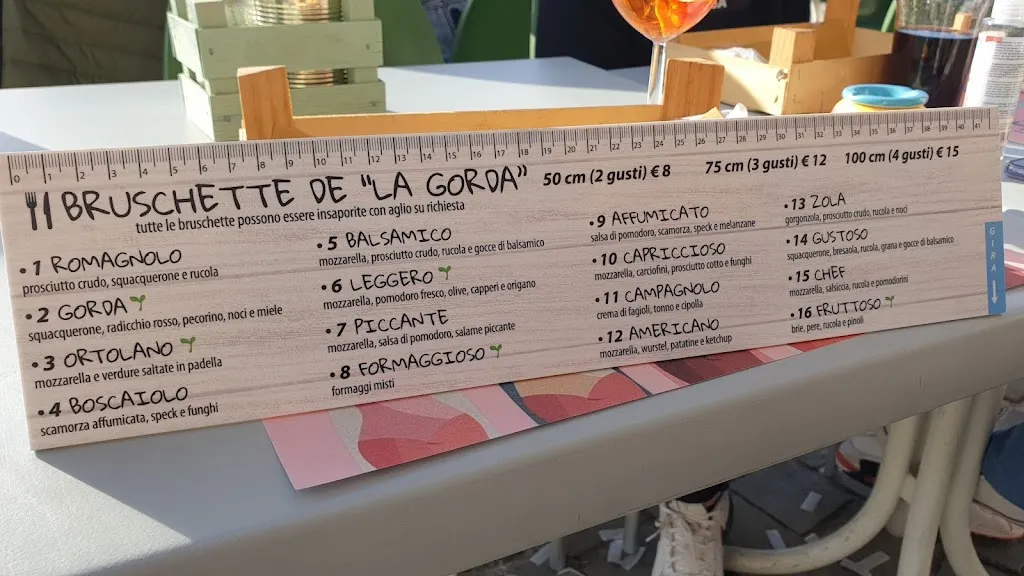 0 1 2 3 4 5 6 7 8 9 10 11 12 13 14 15 16 17 18 19 20 21 22 23 24 25 26 27 28 29 30 31 32 33 34 35 36 37 38 39 40 41
BRUSCHETTE DE "LA GORDA"
50 cm (2 gusti) € 8
75 cm (3 gusti) € 12
100 cm (4 gusti) € 15
tutte le bruschette possono essere insaporite con aglio su richiesta
• 1 ROMAGNOLO
prosciutto crudo, squacquerone e rucola
• 2 GORDA
squacquerone, radicchio rosso, pecorino, noci e miele
• 3 ORTOLANO
mozzarella e verdure saltate in padella
• 4 BOSCAIOLO
scamorza affumicata, speck e funghi
• 5 BALSAMICO
mozzarella, prosciutto crudo, rucola e gocce di balsamico
• 6 LEGGERO
mozzarella, pomodoro fresco, olive, capperi e origano
• 7 PICCANTE
mozzarella, salsa di pomodoro, salame piccante
• 8 FORMAGGIOSO
formaggi misti
• 9 AFFUMICATO
salsa di pomodoro, scamorza, speck e melanzane
• 10 CAPRICCIOSO
mozzarella, carciofini, prosciutto cotto e funghi
• 11 CAMPAGNOLO
crema di fagioli, tonno e cipolla
• 12 AMERICANO
mozzarella, wurstel, patatine e ketchup
• 13 ZOLA
gorgonzola, prosciutto crudo, rucola e noci
• 14 GUSTOSO
squacquerone, bresaola, rucola, grana e gocce di balsamico
• 15 CHEF
mozzarella, salsiccia, rucola e pomodorini
• 16 FRUTTOSO
brie, pere, rucola e pinoli
GIRA